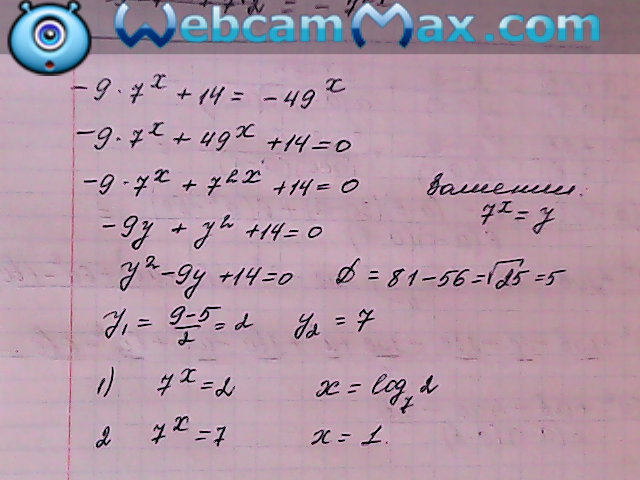 WebcamMax.com
-9·7^x + 14 = -49^x
-9·7^x + 49^x + 14 = 0
-9·7^x + 7^2x + 14 = 0
7^x = y
-9y + y² + 14 = 0
y² - 9y + 14 = 0 D = 81 - 56 = √25 = 5
y₁ = (9-5)/2 = 2 y₂ = 7
1) 7^x = 2 x = log₇ 2
2 7^x = 7 x = 1.